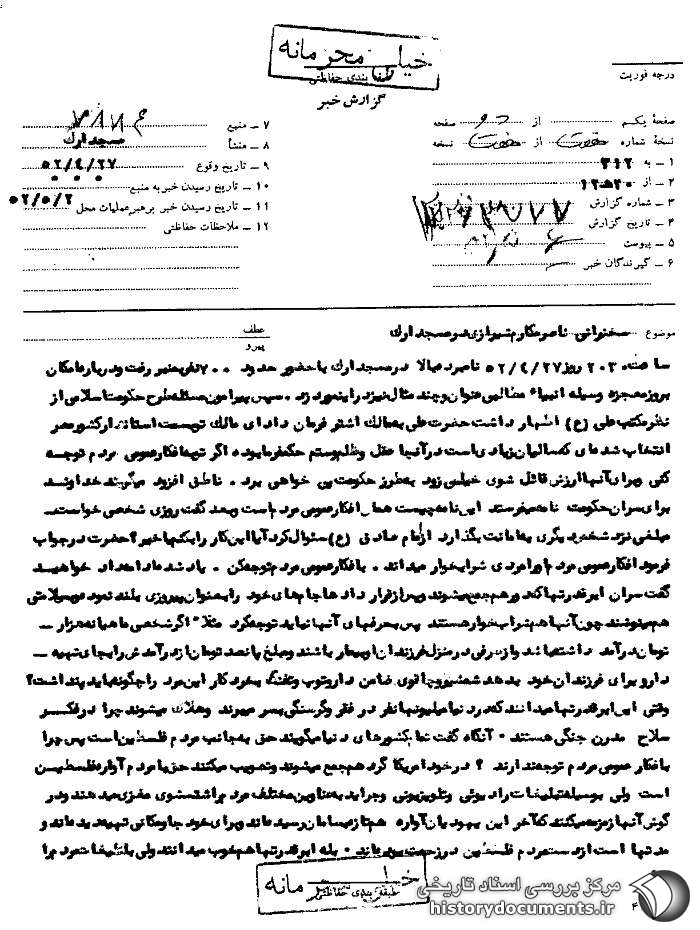 خیلی محرمانه
طبقه بندی حفاظتی
گزارش خبر
درجه فوریت
صفحهٔ یکم از دو صفحه
نسخهٔ شماره از نسخه
۱ ـ به ۳۱۲
۲ ـ از ۱۲ه۲۰
۳ ـ شماره گزارش
۴ ـ تاریخ گزارش
۵ ـ پیوست
۶ ـ گیرندگان خبر
۷ ـ منبع ۷۸۷۴
۸ ـ منشأ مسجد ارک
۹ ـ تاریخ وقوع ۵۲/۴/۲۷
۱۰ ـ تاریخ رسیدن خبر به منبع
۱۱ ـ تاریخ رسیدن خبر برهبر عملیات محل ۵۲/۵/۲
۱۲ ـ ملاحظات حفاظتی
موضوع سخنرانی ناصر مکارم شیرازی در مسجد ارک
عطف
پیرو
ساعت ۲۰۳۰ روز ۵۲/۴/۲۷ نامبرده بالا در مسجد ارک با حضور حدود ۷۰۰ نفر بمنبر رفت و درباره امکان
بروز معجزه وسیله انبیاء مطالبی عنوان و چند مثال نیز در این مورد زد . سپس پیرامون مسئله طرح حکومت اسلامی از
نظر مکتب علی (ع) اظهار داشت حضرت علی به مالک اشتر فرمان داد ای مالک تو بسمت استاندار کشور مصر
انتخاب شده ای که سالیان زیادی است در آنجا عقل و ظلم و ستم حکمفرما بوده اگر تو به افکار عمومی مردم توجه
کنی و برای آنها ارزش قائل شوی خیلی زود به طرز حکومت پی خواهی برد . ناطق افزود میگویند خداوند
برای سران حکومت نامه میفرستد این نامه چیست همان افکار عمومی مردم است و بعد گفت روزی شخصی خواست
مبلغی نزد شخص دیگری به امانت بگذارد از امام صادق (ع) سئوال کرد آیا این کار را بکنم یا خیر؟ حضرت در جواب
فرمود افکار عمومی مردم او را مردی شرابخوار میداند . با افکار عمومی مردم توجه کن . یاد شده ادامه داد خواهید
گفت سران ابرقدرتها که دور هم جمع میشوند و پس از قرار دادها جامهای خود را بعنوان پیروزی بلند نموده و بسلامتی
هم مینوشند چون آنها هم شرابخوار هستند پس به حرفهای آنها نباید توجه کرد مثلا" اگر شخصی ماهیانه هزار
تومان درآمد داشته باشد و از طرفی در منزل فرزندان او بیمار باشند و مبلغ پانصد تومان از درآمدش را بجای تهیه
دارو برای فرزندان خود بدهد شمشیر و چاقوی ضامن دار و توپ و تفنگ بخرد کار این مرد را چگونه باید پنداشت؟
وقتی این ابرقدرتها میدانند که در دنیا میلیونها نفر در فقر و گرسنگی بسر میبرند و هلاک میشوند چرا در فکر
سلاح مدرن جنگی هستند . آنگاه گفت تمام کشورهای دنیا میگویند حق به جانب مردم فلسطین است پس چرا
بافکار عمومی مردم توجه ندارند ؟ در خود امریکا گرد هم جمع میشوند و تصویب میکنند حق با مردم آواره فلسطین
است ولی بوسیله تبلیغات رادیوئی و تلویزیونی و جراید به عناوین مختلف مردم را شستشوی مغزی میدهند و در
گوش آنها زمزمه میکنند که آخر این یهودیان آواره هم تازه بسامان رسیده اند و برای خود جا و مکانی تهیه دیده اند و
مدتها است از دست مردم فلسطین در زحمت بوده اند . بله ابرقدرتها هم خوب میدانند ولی با تبلیغات مردم را
خیلی محرمانه
طبقه بندی حفاظتی
مرکز بررسی اسناد تاریخی
historydocuments.ir
۴